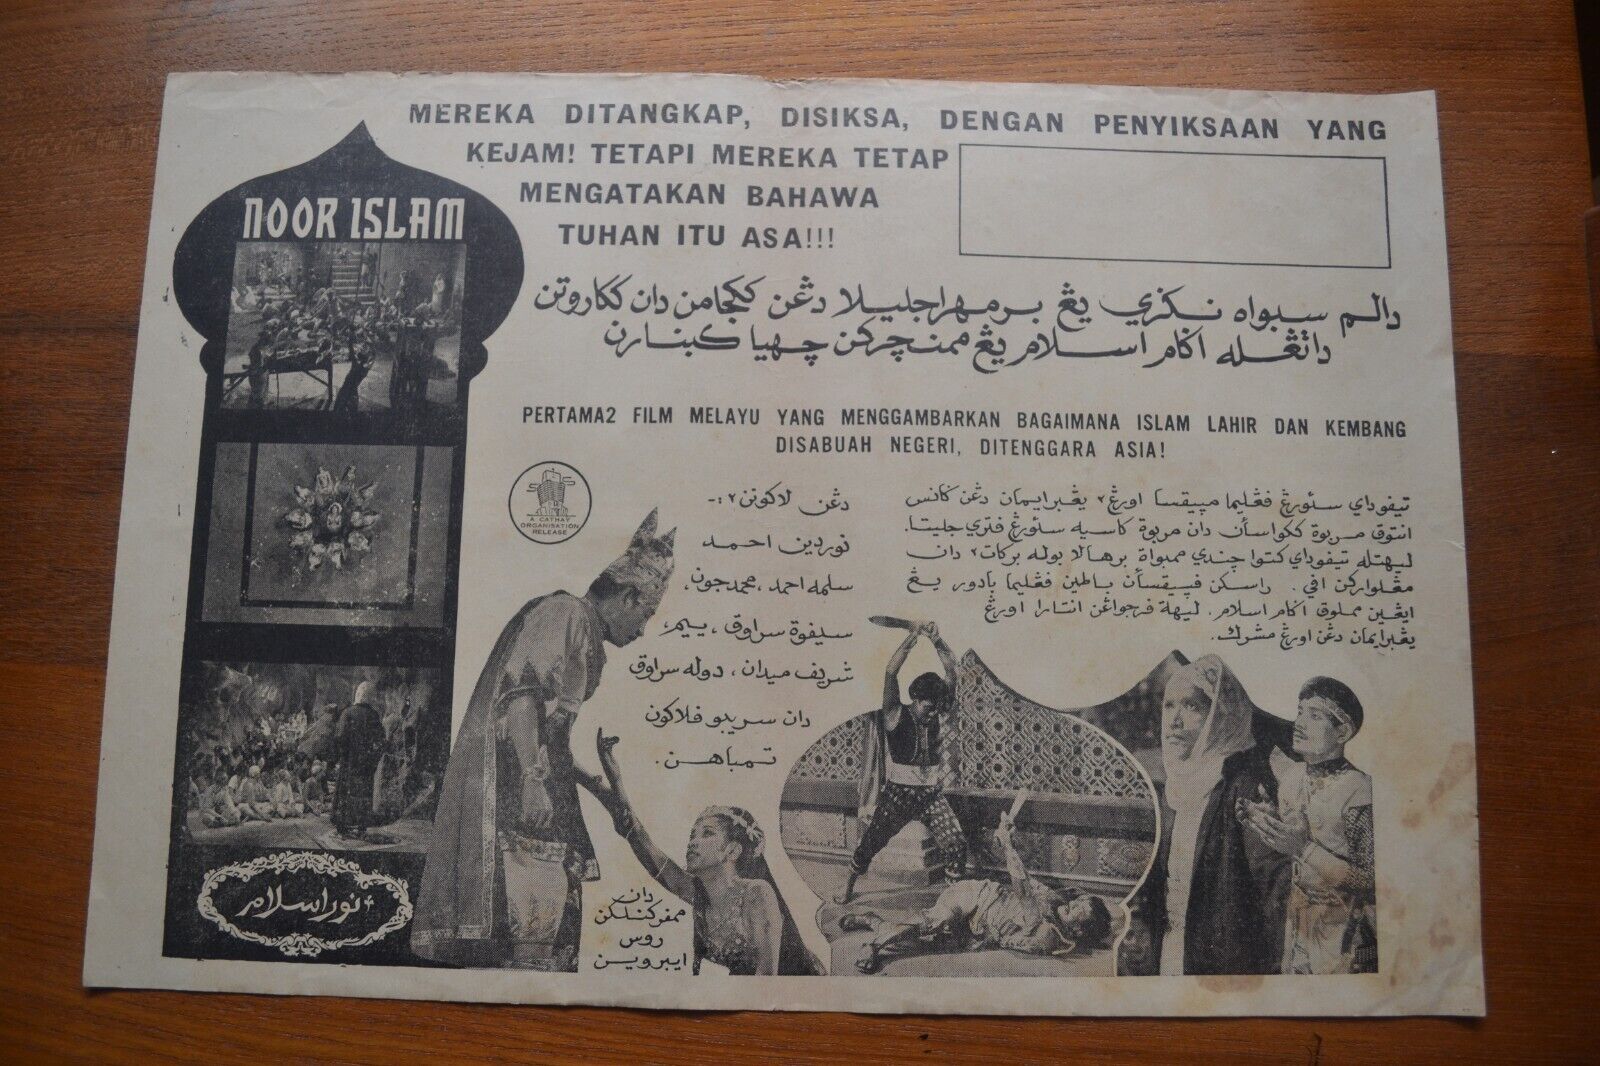 MEREKA DITANGKAP, DISIKSA, DENGAN PENYIKSAAN YANG
KEJAM! TETAPI MEREKA TETAP
MENGATAKAN BAHAWA
TUHAN ITU ASA!!!
NOOR ISLAM
دالم سبواه نڬري يڠ برمهراجليلا دڠن ككجامن دان ككاروتن
داتڠله اݢام اسلام يڠ ممنچركن چهيا كبنارن
PERTAMA2 FILM MELAYU YANG MENGGAMBARKAN BAGAIMANA ISLAM LAHIR DAN KEMBANG
DISABUAH NEGERI, DITENGGARA ASIA!
A CATHAY
ORGANISATION
RELEASE
دڠن لاكونن٢:-
نوردين احمد
سلمه احمد، محمدجون،
سليفوة سراوق، ييم،
شريف ميدان، دوله سراوق
دان سريبو ڤلاكون
تمباهن.
تيڤوداي سئورڠ ڤڠليما مڽيقسا اورڠ٢ يڠبرايمان دڠن ݢانس
انتوق مربوة ككواسأن دان مربوة كاسيه سئورڠ ڤتري جليتا.
ليهتله تيڤوداي كتوا چندي ممبواة برهالا بوله بركات٢ دان
مڠلواركن اڤي. راسكن ڤڽيقسأن باطين ڤڠليما بادور يڠ
ايڠين مملوق اݢام اسلام. ليهة ڤرجواڠن انتارا اورڠ
يڠبرايمان دڠن اورڠ مشرك.
دان
ممڤركنلكن
روس
ايبروين
نور اسلام